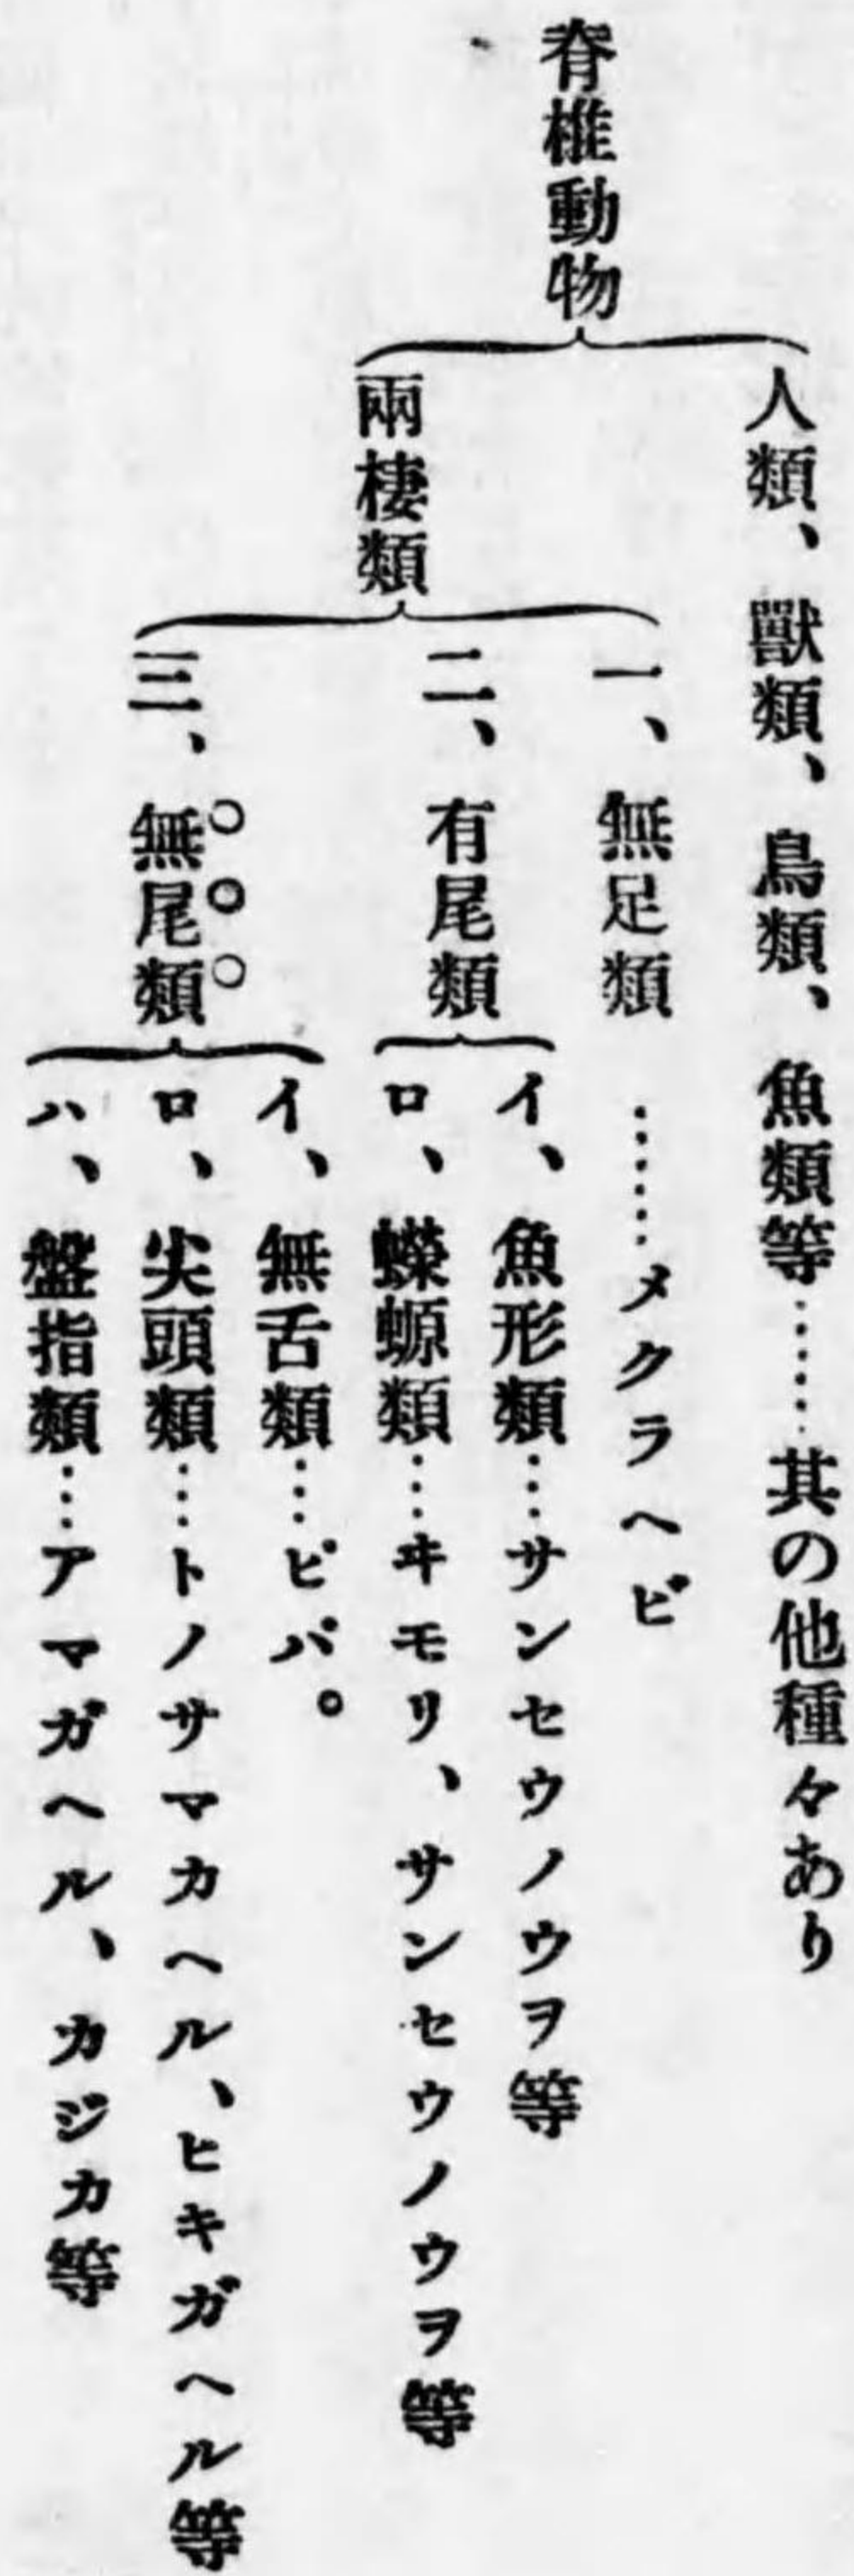 脊椎動物
人類、獸類、鳥類、魚類等……其の他種々あり
兩棲類
一、無足類……メクラヘビ
二、有尾類
イ、魚形類…サンセウノウヲ等
ロ、蠑螈類…ヰモリ、サンセウノウヲ等
三、無尾類
○○○
イ、無舌類…ピパ。
ロ、尖頭類…トノサマカヘル、ヒキガヘル等
ハ、盤指類…アマガヘル、カジカ等